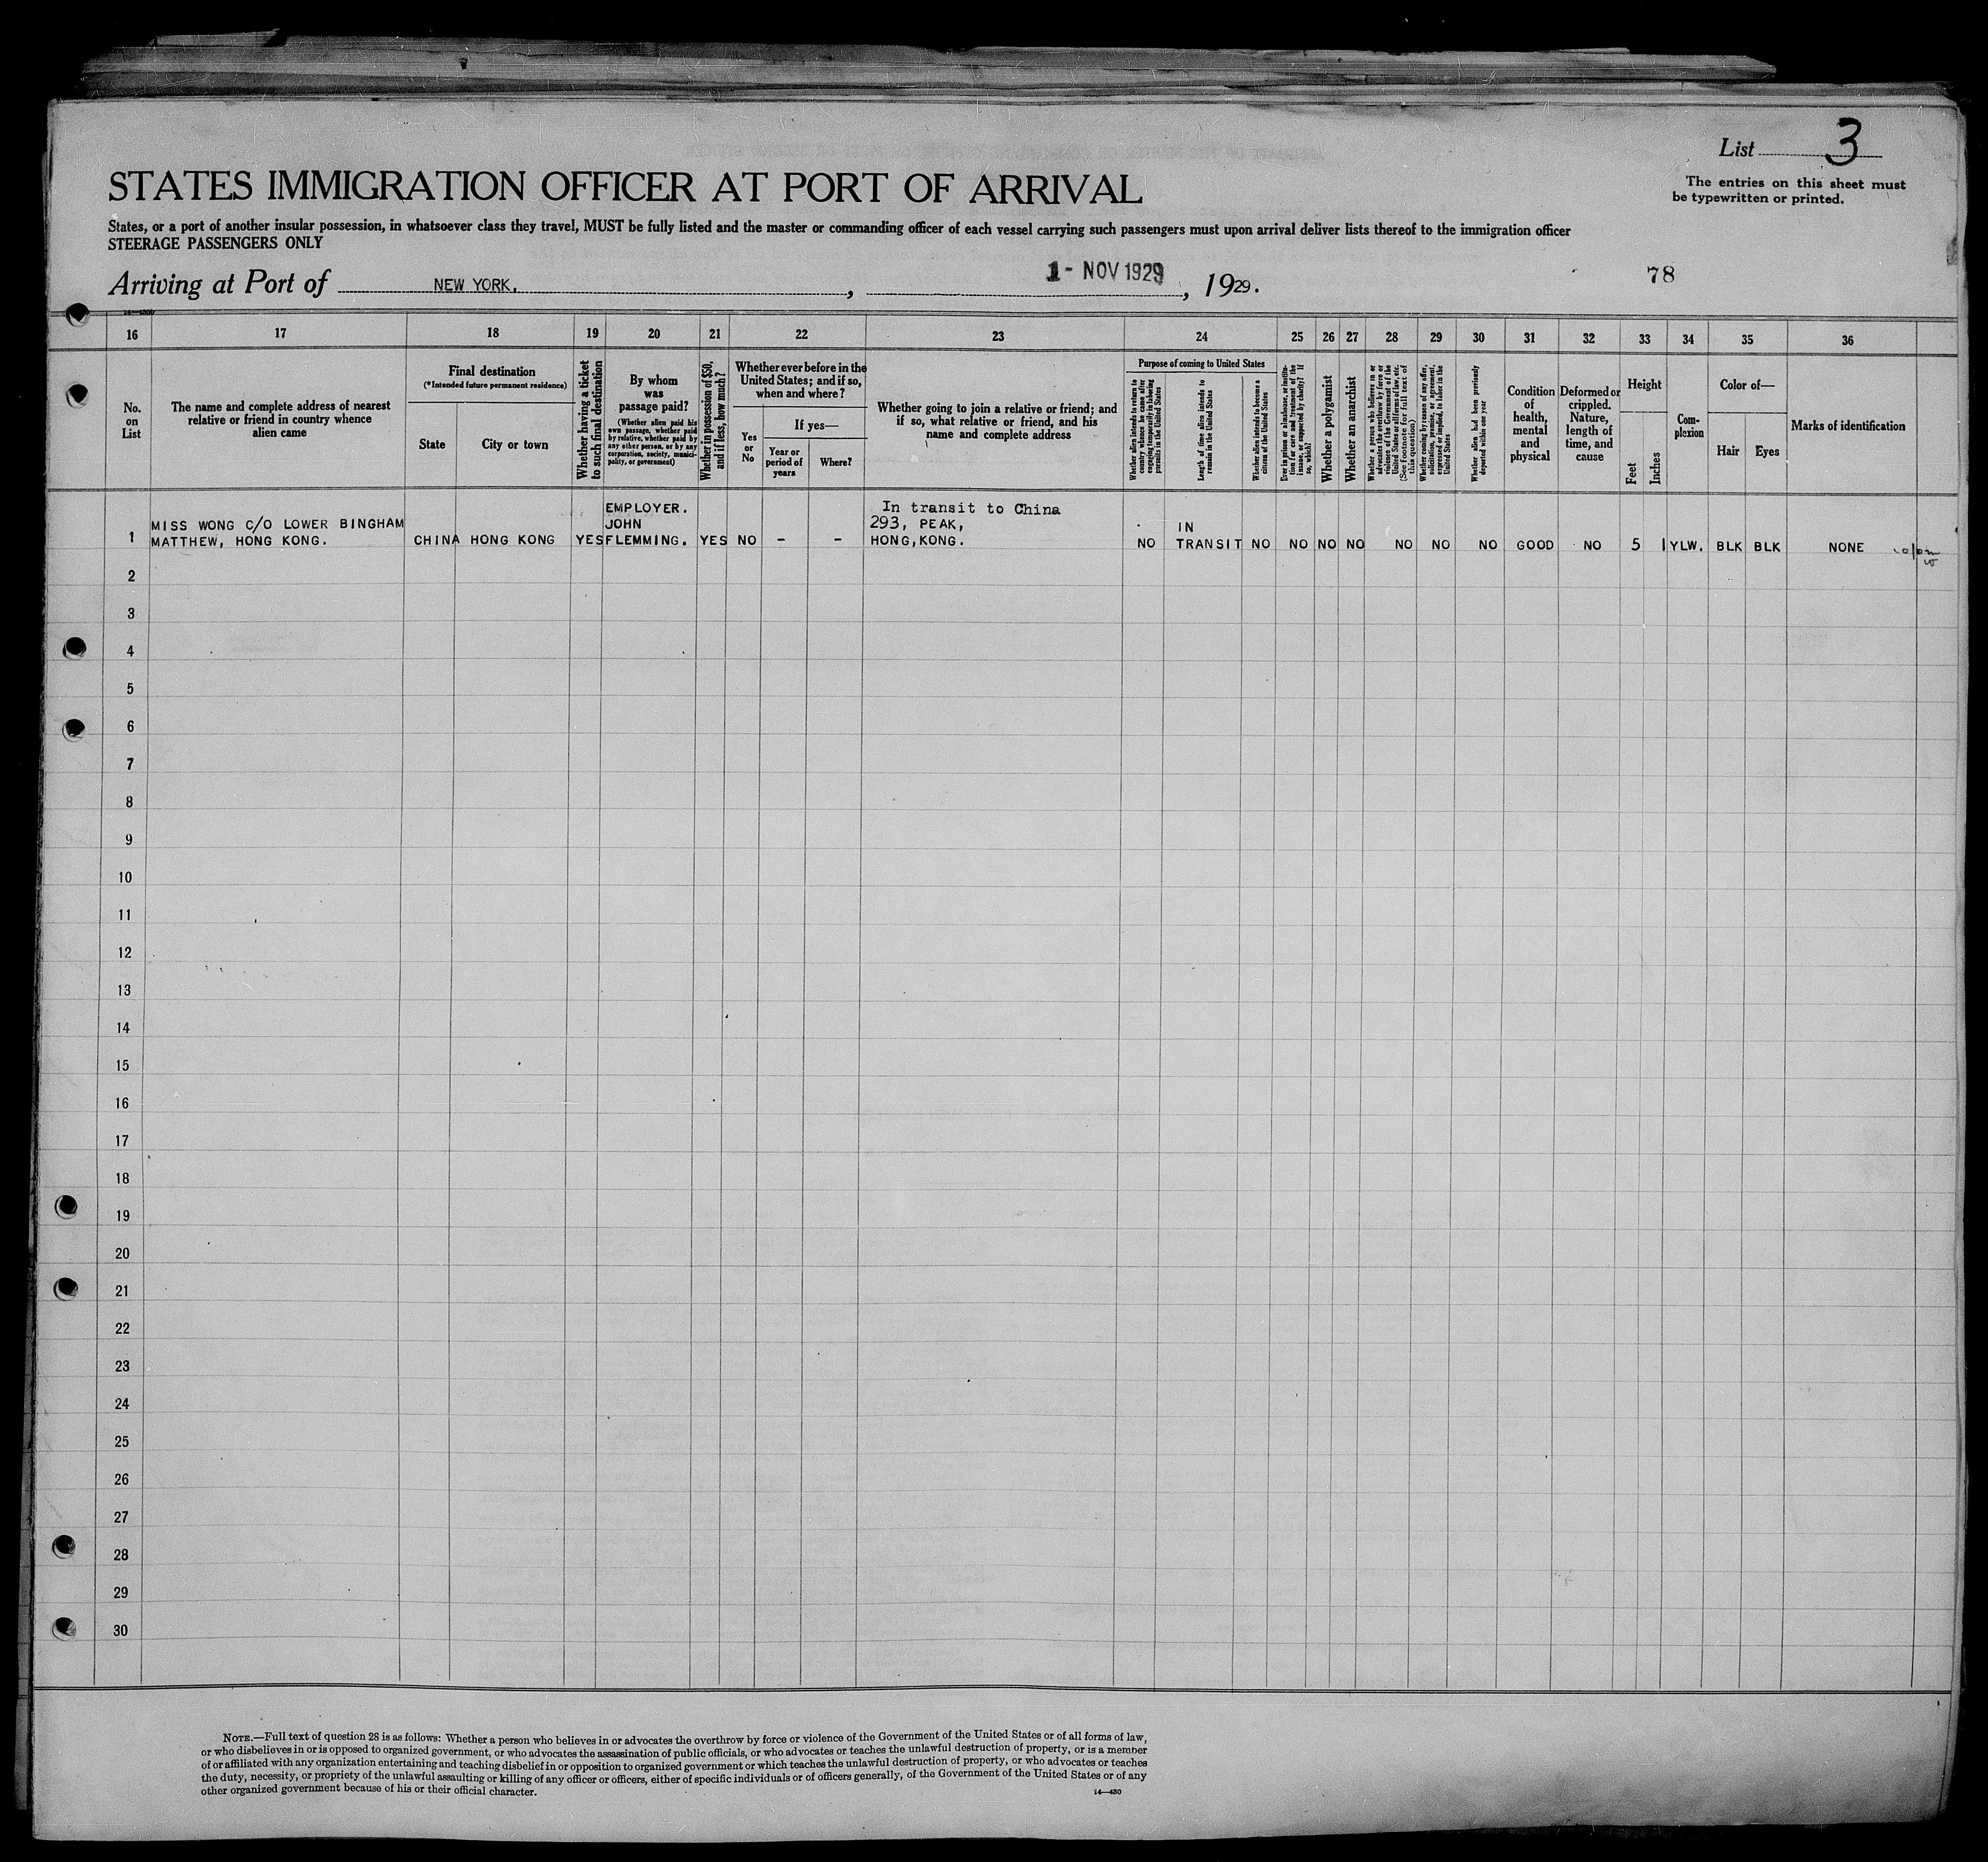 List 3
The entries on this sheet must
be typewritten or printed.
STATES IMMIGRATION OFFICER AT PORT OF ARRIVAL
States, or a port of another insular possession, in whatsoever class they travel, MUST be fully listed and the master or commanding officer of each vessel carrying such passengers must upon arrival deliver lists thereof to the immigration officer
STEERAGE PASSENGERS ONLY
Arriving at Port of NEW YORK. , 1- NOV 1929 , 1929.
78
16 17 18 19 20 21 22 23 24 25 26 27 28 29 30 31 32 33 34 35 36
No.
on
List
The name and complete address of nearest
relative or friend in country whence
alien came
Final destination
(*Intended future permanent residence)
State
City or town
Whether having a ticket
to such final destination
By whom
was
passage paid?
(Whether alien paid his
own passage, whether paid
by relative, whether paid by
any other person, or by any
corporation, society, munici-
pality, or government)
Whether in possession of $50,
and if less, how much?
Whether ever before in the
United States; and if so,
when and where?
Yes
or
No
If yes—
Year or
period of
years
Where?
Whether going to join a relative or friend; and
if so, what relative or friend, and his
name and complete address
Purpose of coming to United States
Whether alien intends to return to
country whence he came after
engaging temporarily in laboring
pursuits in the United States
Length of time alien intends to
remain in the United States
Whether alien intends to become a
citizen of the United States
Ever in prison or almshouse, or institu-
tion for care and treatment of the
insane, or supported by charity? If
so, which?
Whether a polygamist
Whether an anarchist
Whether a person who believes in or
advocates the overthrow by force or
violence of the Government of the
United States or all forms of law, etc.
(See footnote for full text of
this question)
Whether coming by reason of any offer,
solicitation, promise, or agreement,
expressed or implied, to labor in the
United States
Whether alien had been previously
deported within one year
Condition
of
health,
mental
and
physical
Deformed or
crippled.
Nature,
length of
time, and
cause
Height
Feet
Inches
Com-
plexion
Color of—
Hair
Eyes
Marks of identification
EMPLOYER. In transit to China
MISS WONG C/O LOWER BINGHAM JOHN 293, PEAK, IN
1 MATTHEW, HONG KONG. CHINA HONG KONG YES FLEMMING. YES NO - - HONG,KONG. NO TRANSIT NO NO NO NO NO NO NO GOOD NO 5 1 YLW. BLK BLK NONE
2
3
4
5
6
7
8
9
10
11
12
13
14
15
16
17
18
19
20
21
22
23
24
25
26
27
28
29
30
NOTE.—Full text of question 28 is as follows: Whether a person who believes in or advocates the overthrow by force or violence of the Government of the United States or of all forms of law,
or who disbelieves in or is opposed to organized government, or who advocates the assassination of public officials, or who advocates or teaches the unlawful destruction of property, or is a member
of or affiliated with any organization entertaining and teaching disbelief in or opposition to organized government or which teaches the unlawful destruction of property, or who advocates or teaches
the duty, necessity, or propriety of the unlawful assaulting or killing of any officer or officers, either of specific individuals or of officers generally, of the Government of the United States or of any
other organized government because of his or their official character.
14—430